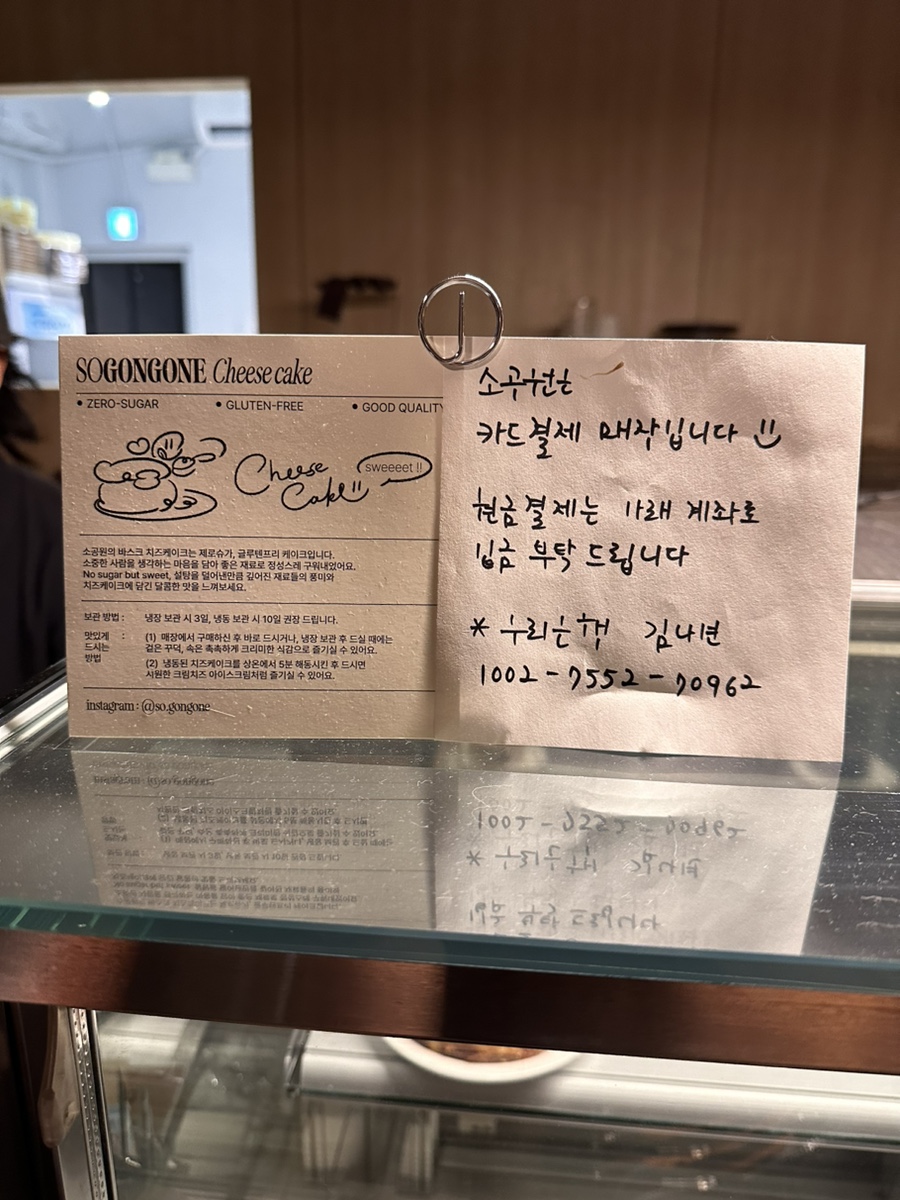 SOGONGONE Cheese cake
• ZERO-SUGAR • GLUTEN-FREE • GOOD QUALITY
Cheese
Cake
sweeeet !!
소공원의 바스크 치즈케이크는 제로슈가, 글루텐프리 케이크입니다.
소중한 사람을 생각하는 마음을 담아 좋은 재료로 정성스레 구워내었어요.
No sugar but sweet, 설탕을 덜어낸만큼 깊어진 재료들의 풍미와
치즈케이크에 담긴 달콤한 맛을 느껴보세요.
보관 방법 : 냉장 보관 시 3일, 냉동 보관 시 10일 권장 드립니다.
맛있게 : (1) 매장에서 구매하신 후 바로 드시거나, 냉장 보관 후 드실 때에는
드시는 겉은 꾸덕, 속은 촉촉하게 크리미한 식감으로 즐기실 수 있어요.
방법 (2) 냉동된 치즈케이크를 상온에서 5분 해동시킨 후 드시면
시원한 크림치즈 아이스크림처럼 즐기실 수 있어요.
instagram : @so.gongone
소공원은
카드결제 매장입니다
현금결제는 아래 계좌로
입금 부탁 드립니다
* 우리은행 김나연
1002-7552-70962